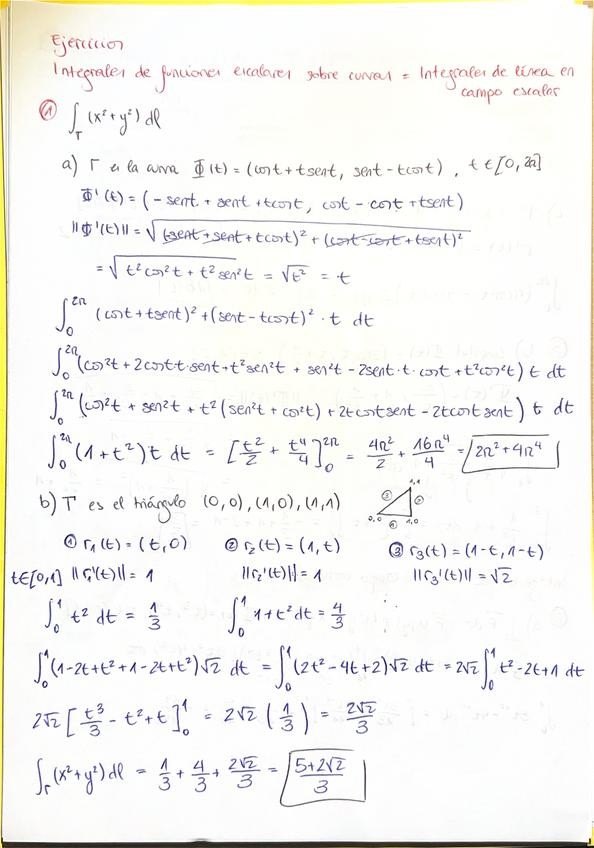 Ejercicios
Integrales de funciones escalares sobre curvas = Integrales de línea en
campo escalar
① ∫_Γ (x²+y²) dl
a) Γ es la curva Φ(t) = (cost + tsent, sent - tcost) , t ∈ [0, 2π]
Φ'(t) = (-sent + sent + tcost, cost - cost + tsent)
||Φ'(t)|| = √((-sent + sent + tcost)² + (cost - cost + tsent)²)
= √(t²cos²t + t²sen²t) = √t² = t
∫₀^2π (cost + tsent)² + (sent - tcost)² · t dt
∫₀^2π (cos²t + 2cost·t·sent + t²sen²t + sen²t - 2sent·t·cost + t²cos²t) t dt
∫₀^2π (cos²t + sen²t + t²(sen²t + cos²t) + 2tcostsent - 2tcostsent) t dt
∫₀^2π (1+t²)t dt = [t²/2 + t⁴/4]₀^2π = 4π²/2 + 16π⁴/4 = 2π² + 4π⁴
b) Γ es el triángulo (0,0), (1,0), (1,1)
1,1
③ ②
0,0 ① 1,0
① r₁(t) = (t,0) ② r₂(t) = (1,t) ③ r₃(t) = (1-t, 1-t)
t∈[0,1] ||r₁'(t)|| = 1 ||r₂'(t)|| = 1 ||r₃'(t)|| = √2
∫₀¹ t² dt = 1/3 ∫₀¹ 1+t² dt = 4/3 ⋮
∫₀¹ (1-2t+t²+1-2t+t²)√2 dt = ∫₀¹ (2t²-4t+2)√2 dt = 2√2 ∫₀¹ t²-2t+1 dt
2√2 [t³/3 - t² + t]₀¹ = 2√2 (1/3) = 2√2/3
∫_Γ (x²+y²) dl = 1/3 + 4/3 + 2√2/3 = (5+2√2)/3